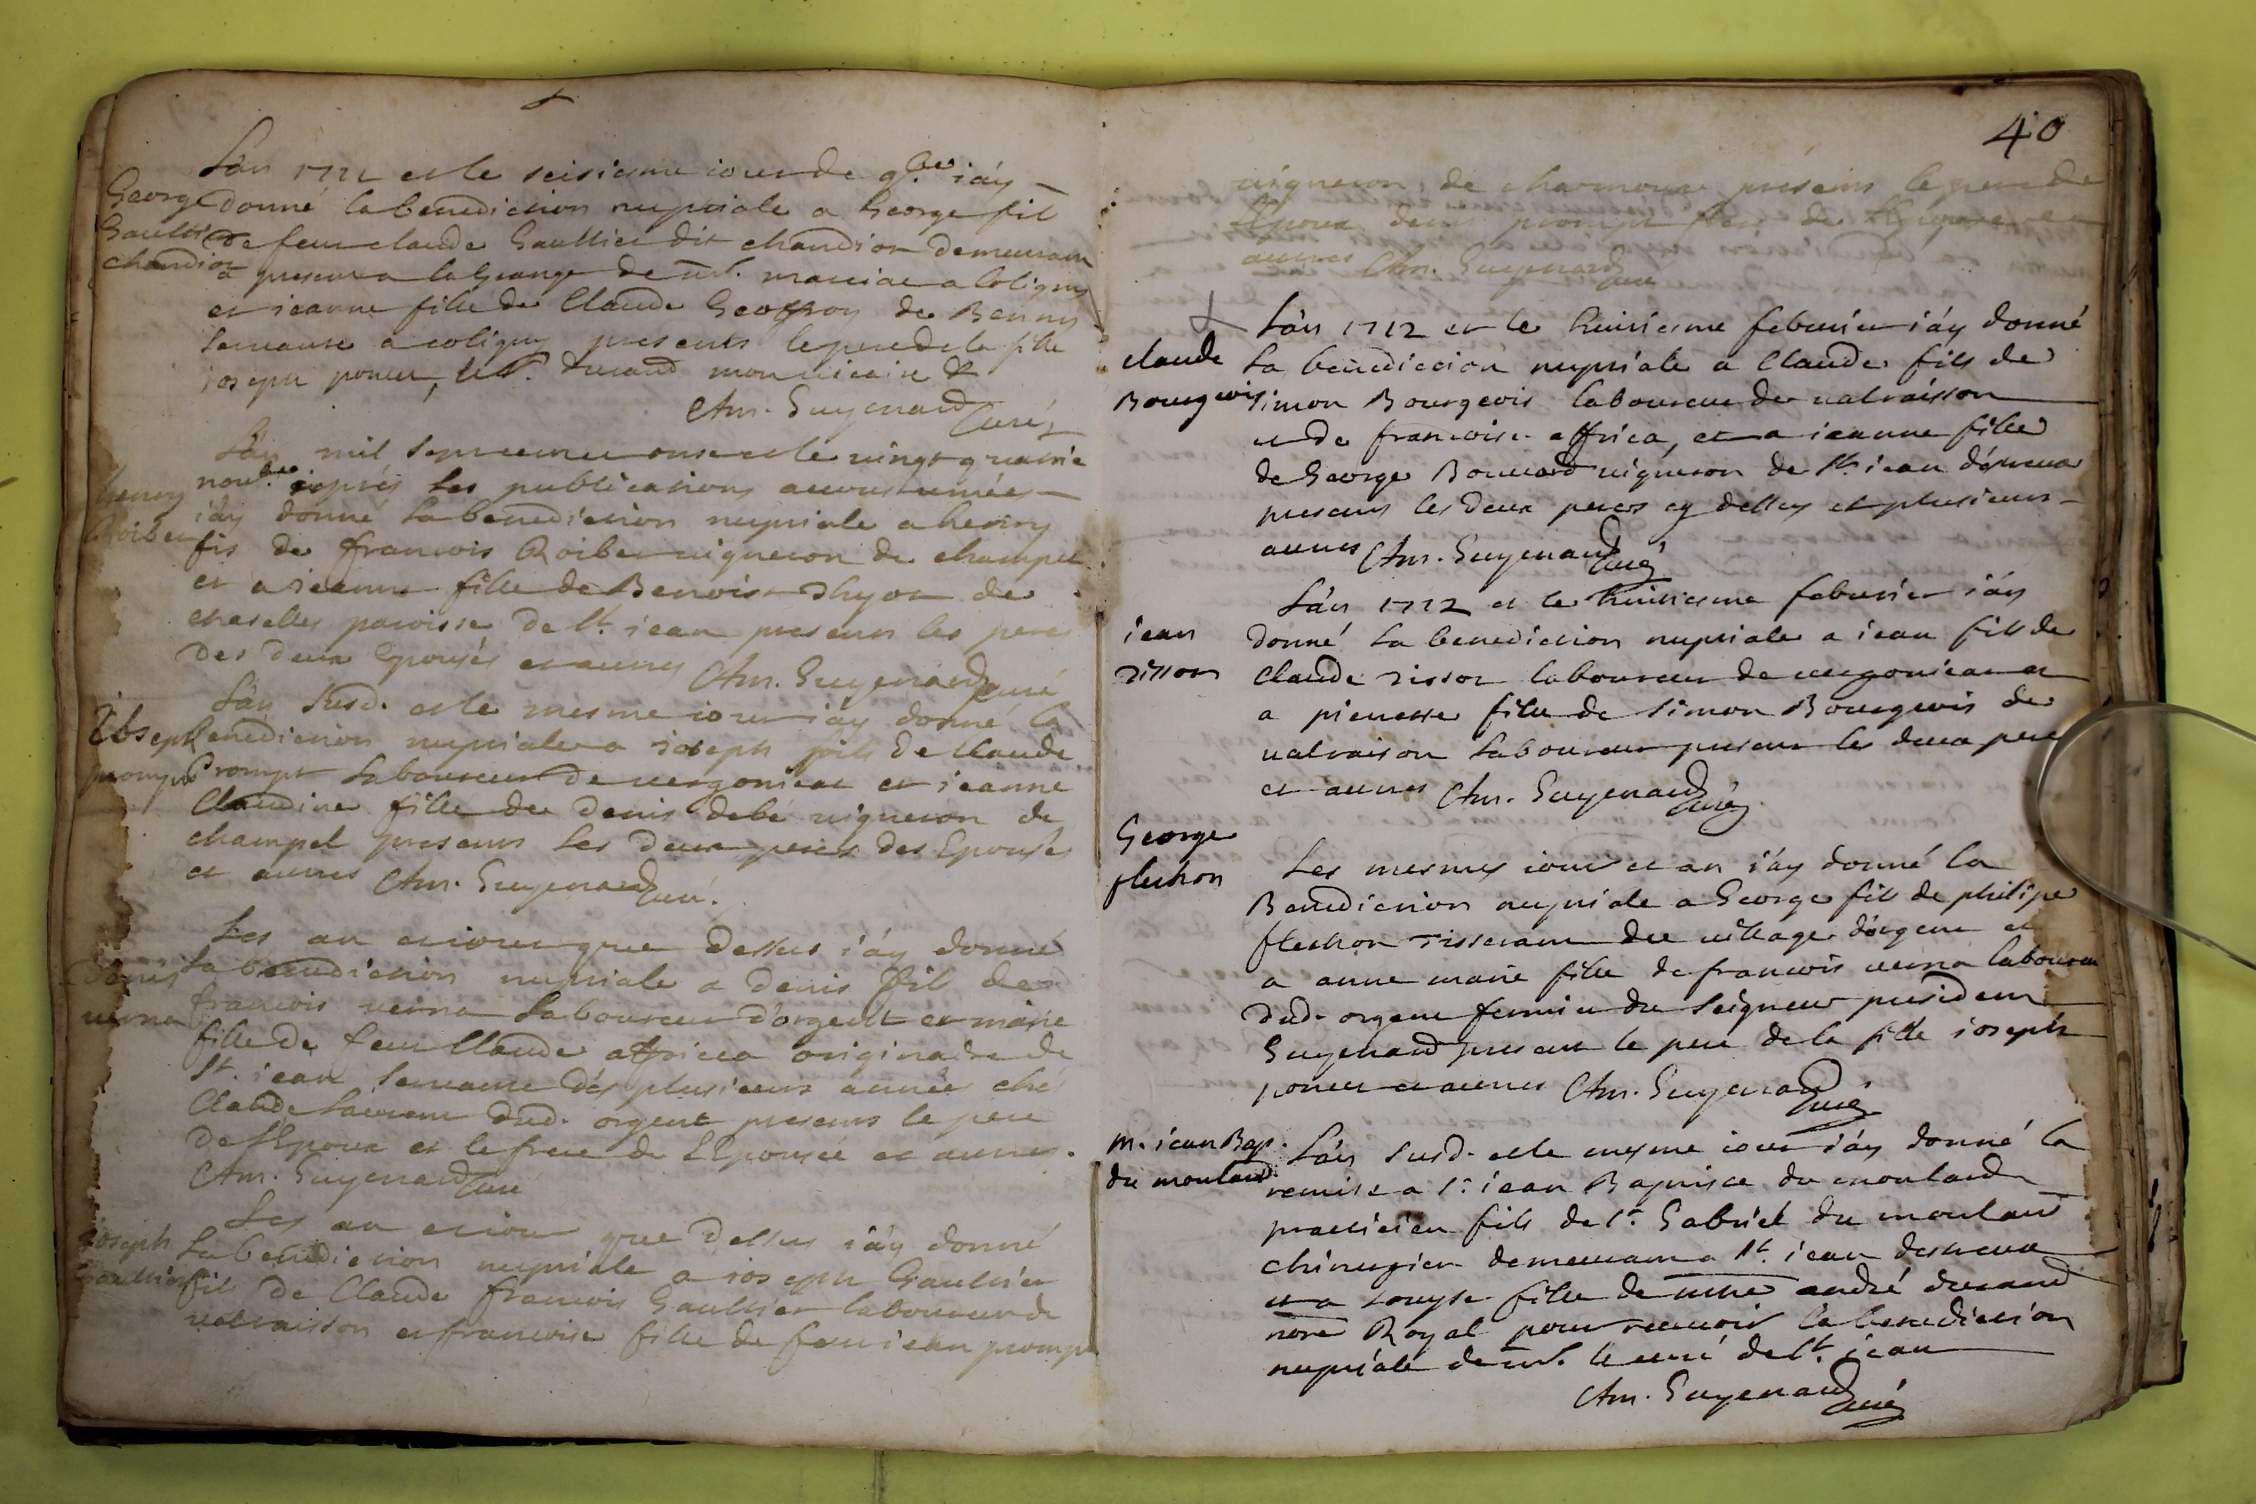 George
Gaultier
chandion
L'an 1711 et le seisiesme iour de 9.bre i'ay
donné la benediction nuptiale a George fil
de feu claude Gaultier dit chandion demeurant
a present a la Grange de mr. marciat a Coligny
et ieanne fille de Claude Geoffroy de Benny
servante a coligny presents le pere de la fille
ioseph poncet, Mr. durand mon vicaire &
Am. Guyenard Curé
henry
Roibet
L'an mil sept cent onze et le vingt quatrie
nou.bre apres les publications accoustumées
i'ay donné la benediction nuptiale a henry
fis de francois Roibet vigneron de champel
et a ieanne fille de Benoist Thyot de
chaselles paroisse de St. iean presents les peres
des deux Epousés et autres Am. Guyenard Curé
Ioseph
prompt
L'an susd. et le mesme iour i'ay donné la
benediction nuptiale a ioseph fils de Claude
Prompt laboureur de vergonieat et ieanne
Claudine fille de Denis debé vigneron de
champel presents les deux peres des Epousés
et autres Am. Guyenard Curé.
Denis
verna
Les an et iour que dessus i'ay donné
la benediction nuptiale a denis fils de
francois verna laboureur d'orgent et marie
fille de feu Claude affricca originaire de
St. iean servante des plusieurs année ché
Claude Laurent dud. orgent presents le pere
de l'Epoux et le frere de l'Epousée et autres.
Am. Guyenard Curé
ioseph
Gaultier
Les an et iour que dessus i'ay donné
la benediction nuptiale a ioseph Gaultier
fils de Claude francois Gaultier laboureur de
valraisson et francoise fille de feu iean prompt
40
vigneron de charmoux presents le pere de
l'Epoux denis prompt frere de l'Epouse et
autres Am. Guyenard Curé
claude
Bourgeois
L'an 1712 et le huitiesme febvrier i'ay donné
la benediction nuptiale a Claude fils de
simon Bourgeois laboureur de valraisson
et de francoise affrica, et a ieanne fille
de George Bouvard vigneron de St. iean d'etreux
presents les deux peres cy dessus et plusieurs
autres Am. Guyenard Curé
iean
tissot
L'an 1712 et le huitiesme febvrier i'ay
donné la benediction nuptiale a iean fils de
Claude tissot laboureur de vergonieat et
a pierrette fille de simon Bourgeois de
valraison laboureur present les deux pere
et autres Am. Guyenard Curé
George
flechon
Les mesmes iour et an i'ay donné la
Benediction nuptiale a George fils de philipe
flechon tisserant du village d'orgent et
a anne marie fille de francois verna laboureur
dud. orgent fermier du seigneur president
Guyenard present le pere de la fille ioseph
poncet et autres Am. Guyenard Curé
m. iean Bap.
du moulard
L'an susd. et le mesme iour i'ay donné la
remise a sr. iean Baptiste du moulard
practicien fils de sr. Gabriel du moulard
chirurgien demeurant a St. iean destreux
et a Louyse fille de mtre andré durand
nore Royal pour recevoir la benediction
nuptiale de mr. le curé de St. iean
Am. Guyenard Curé